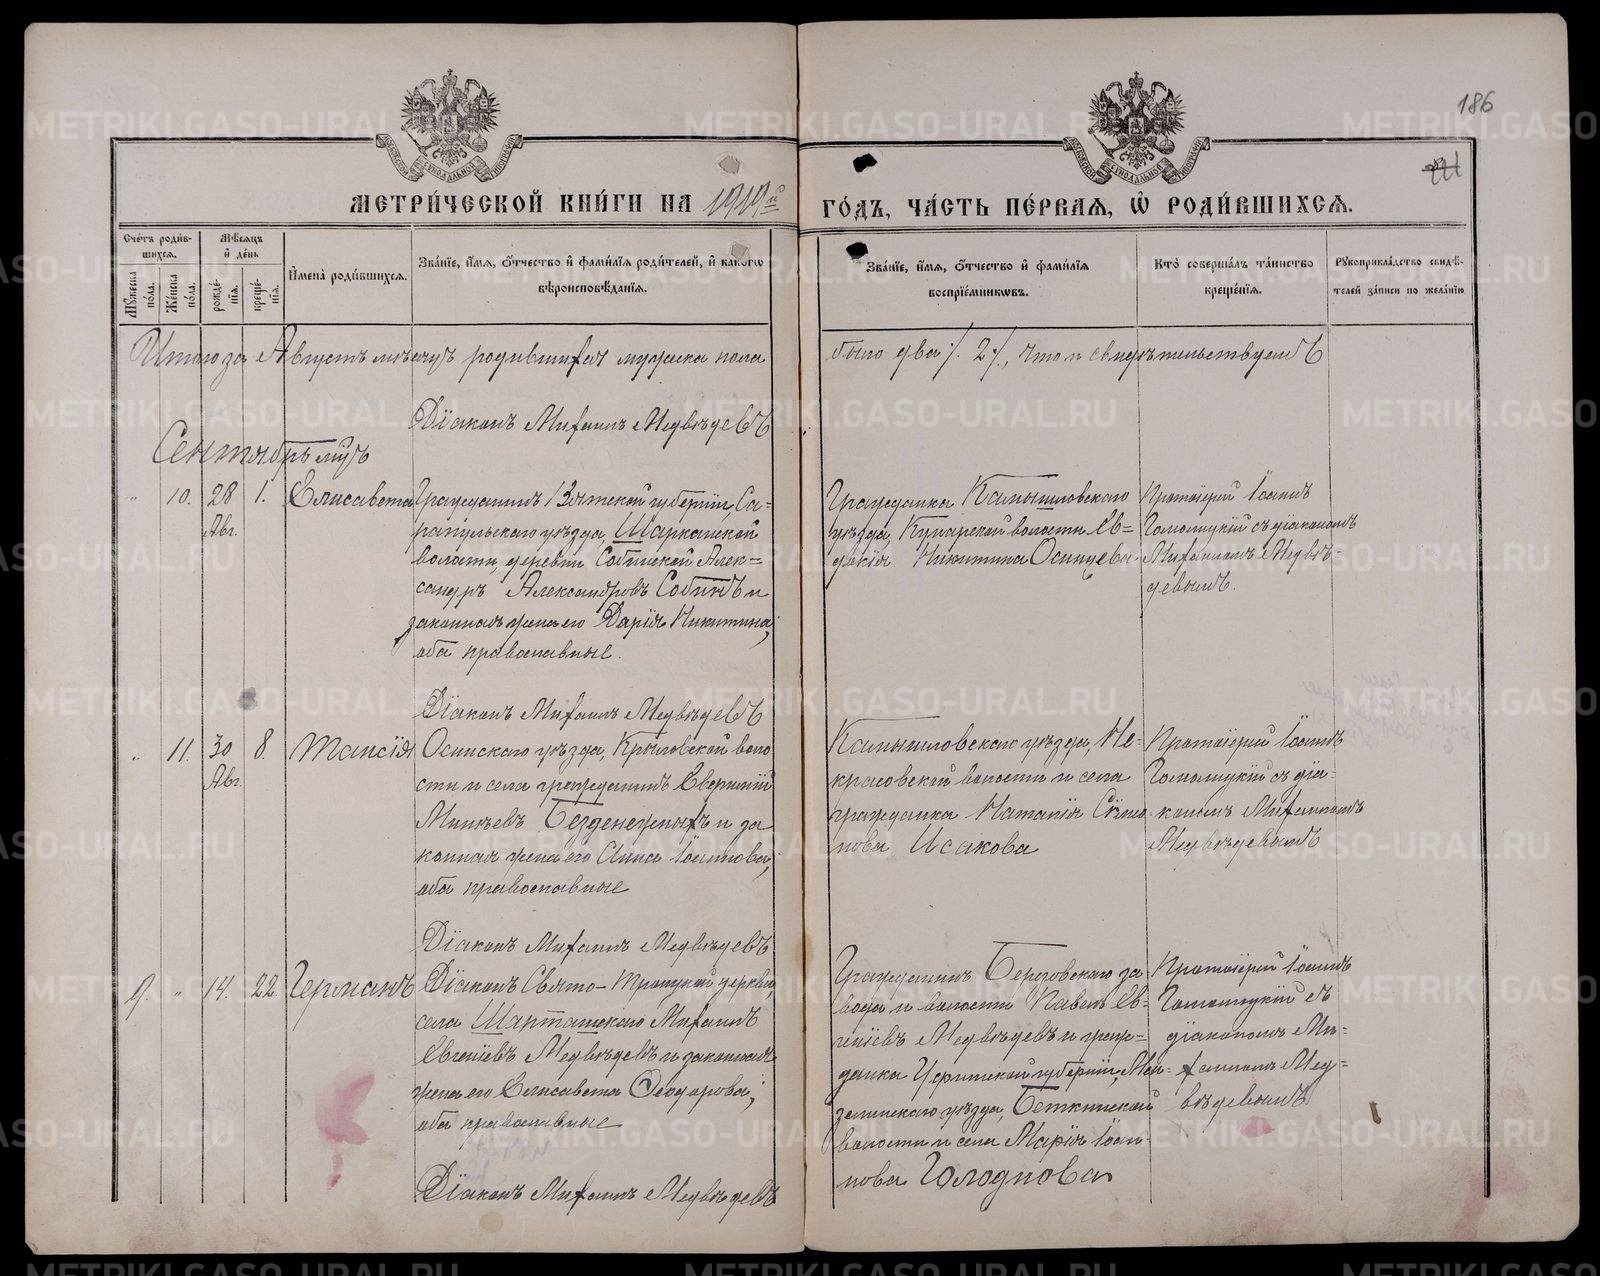 186
МЕТРИ́ЧЕСКОЙ КНИ́ГИ НА 1919й ГО́ДЪ, ЧА́СТЬ ПЕ́РВАЯ, Ѡ҆ РОДИ́ВШИХСЯ.
Сче́тъ роди́в-
шихся.
Мꙋ́жеска по́ла.
Же́нска по́ла.
Мѣ́сяцъ и҆ де́нь
рожде́-
нїя.
креще́-
нїя.
И҆мена̀ роди́вшихся.
Зва́нїе, и҆́мя, ѻ҆́тчество и҆ фами́лїя роди́телей, и҆ како́гѡ
вѣроисповѣ́данїя.
Зва́нїе, и҆́мя, ѻ҆́тчество и҆ фами́лїя
воспрїе́мникѡвъ.
Кто̀ соверша́лъ та́инство
креще́нїя.
Рꙋкоприкла́дство свидѣ́-
телей за́писи по жела́нїю
Итого за Августъ мѣсяцъ родившихся мужска пола
было два /. 2 /., что и свидѣтельствуемъ
Дїаконъ Михаилъ Медвѣдевъ
Сентябрь мцъ
" 10. 28 Авг. 1. Елисавета
Гражданинъ Вятской губернїи, Са-
рапульскаго уѣзда, Шарканской
волости, деревни Собинской Алек-
сандръ Александровъ Собинъ и
законная жена его Дарїя Никитина,
оба православные.
Гражданка Камышловскаго
уѣзда, Кунарской волости Ев-
докїя Никитина Осинцева
Протоїерей Іоаннъ
съ дїакономъ
Михаиломъ Медвѣ-
девымъ.
Дїаконъ Михаилъ Медвѣдевъ
" 11. 30 Авг. 8. Таисїя
Осинскаго уѣзда, Крыловской воло
сти и села гражданинъ
Безденежныхъ и за
конная жена его Анна Іоаннова,
оба православные
Камышловскаго уѣзда, Не-
красовской волости и села
гражданка Наталїя Сѵмо
нова Исакова
Протоїерей Іоаннъ
съ дїа-
кономъ Михаиломъ
Медвѣдевымъ
Дїаконъ Михаилъ Медвѣдевъ
9. " 14. 22. Германъ
Дїаконъ Свято-Троицкой церкви,
села Шарташскаго Михаилъ
Евгенїевъ Медвѣдевъ и законная
жена его Елисавета Ѳеодорова,
оба православные
Гражданинъ Березовскаго за-
вода и волости Павелъ Ев-
генїевъ Медвѣдевъ и граж-
данка Уфимской губернїи, Мен-
зелинскаго уѣзда, Беткинской
волости и села Марїя Іоан
нова Голоднова
Протоїерей Іоаннъ
съ
дїакономъ Ми-
хаиломъ Мед-
вѣдевымъ
Дїаконъ Михаилъ Медвѣдевъ
METRIKI.GASO-URAL.RU